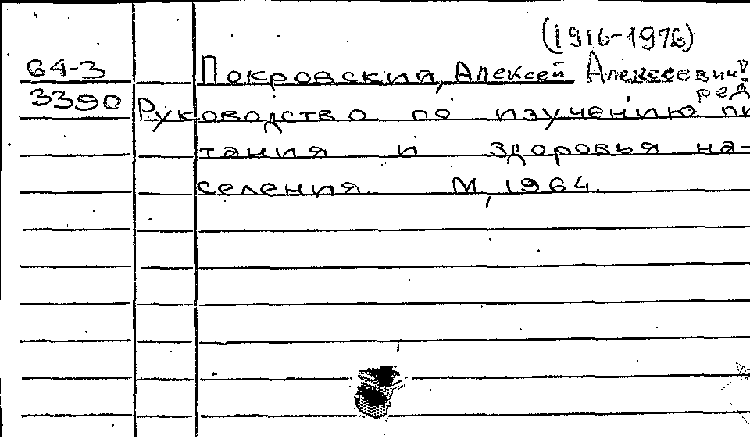 (1916-1976)
64-3 Покровский, Алексей Алексеевич,
3390 ред.
Руководство по изучению пи
тания и здоровья на-
селения. М, 1964.